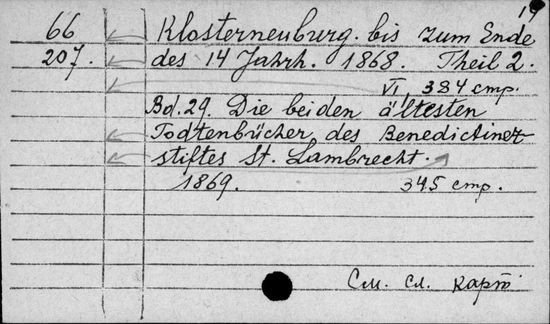 14
66 Klosterneuburg. bis zum Ende
207. des 14 Jahrh. 1868. Theil 2.
VI, 384 стр.
Bd. 29. Die beiden ältesten
Todtenbücher des Benedictiner
stiftes St. Lambrecht.
1869. 345 стр.
См. сл. карт.